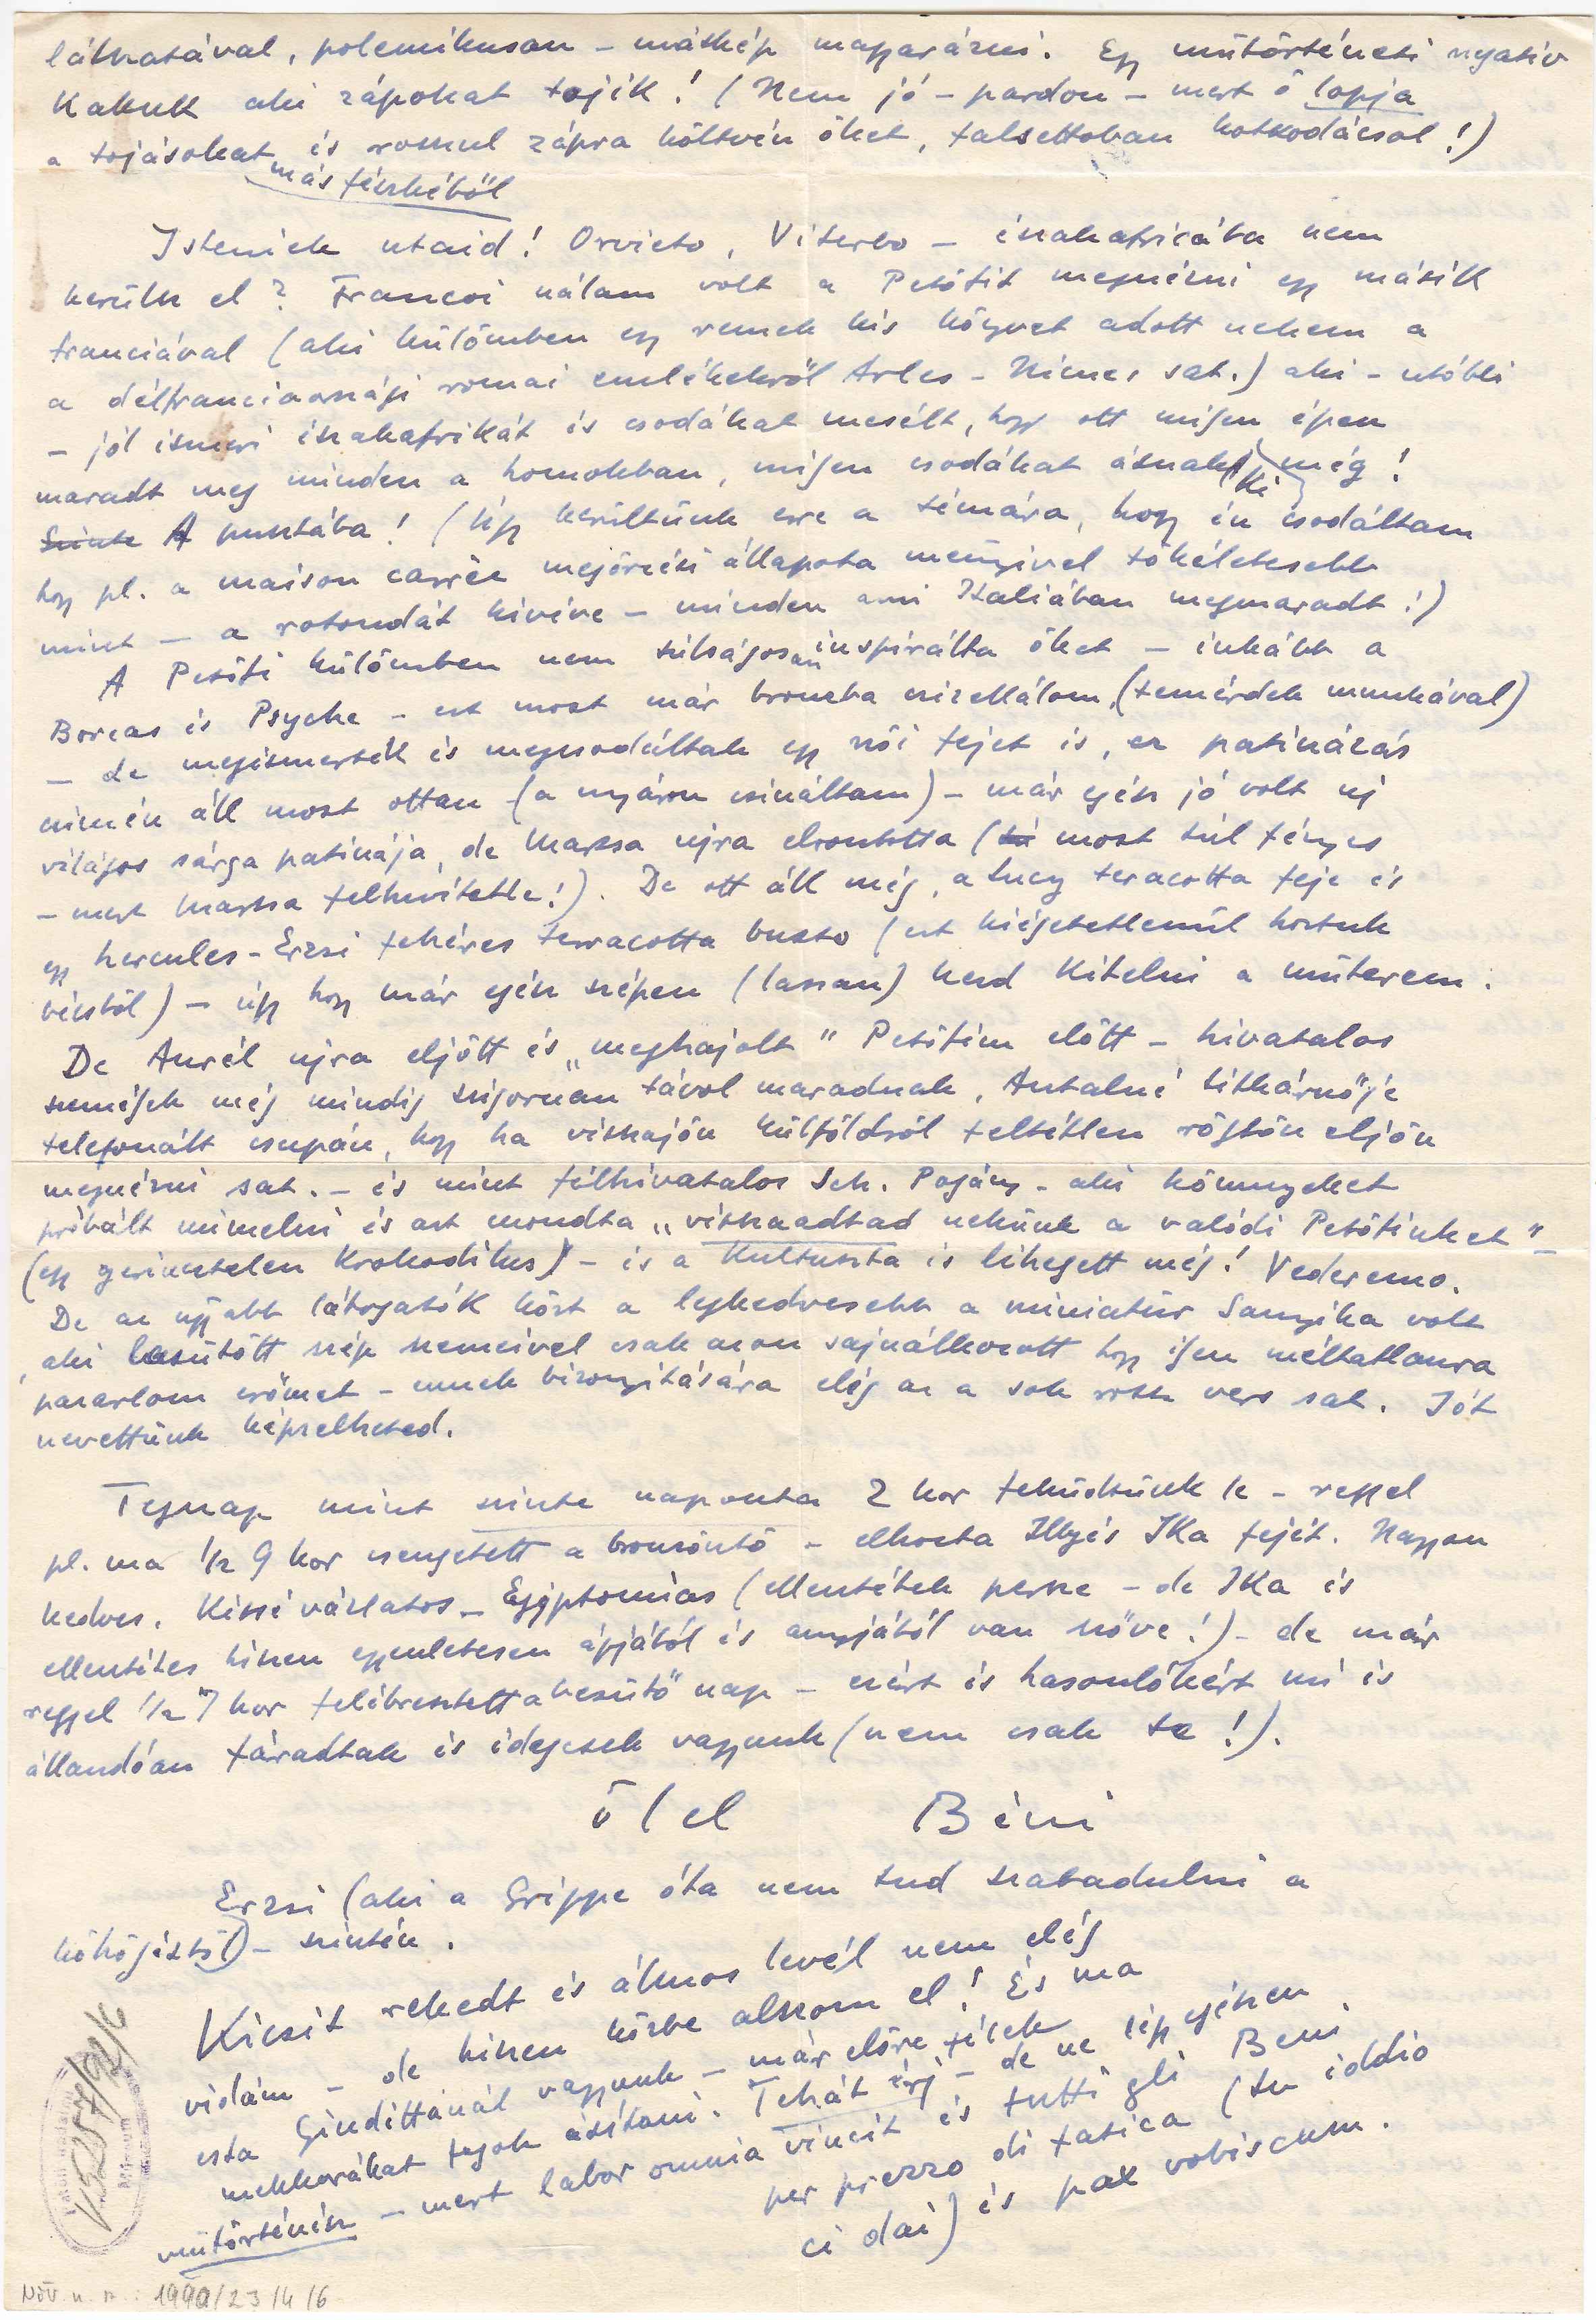 láthatával, polemikusan – máskép magyarázni. Egy mütörténeti negativ
Kakukk aki zápokat tojik! (Nem jó – pardon – mert ő lopja
a tojásokat más fészkéből és rosszul zápra költvén őket, falsettoban kotkodácsol!)
Isteniek utaid! Orvieto, Viterbo – északafricába nem
kerülsz el? Francoi nálam volt a Petőfit megnézni egy másik
franciával (aki külömben egy remek kis könyvet adott nekem a
a délfranciaországi romai emlékekről Arles – Nimes sat.) aki – utóbbi
– jól ismeri északafrikát és csodákat mesélt, hogy ott milyen épen
maradt meg minden a homokban, milyen csodákat ásnak ki még!
Szinte A pusztába! (Úgy kerültünk erre a témára, hogy én csodáltam
hogy pl. a maison carrée megőrzési állapota mennyivel tökéletesebb
mint – a rotondát kivéve – minden ami Italiában megmaradt!)
A Petőfi külömben nem túlságosan inspirálta őket – inkább a
Boreas és Psyche – ezt most már bronzba cizellálom, (temérdek munkával)
– de megismerték és megcsodálták egy női fejet is, ez patinázás
címén áll most ottan (a nyáron csináltam) – már egész jó volt uj
világos sárga patinája, de Marsa ujra elrontotta (tú most túl fényes
– mert Marsa felhevítette!). De ott áll még, a Lucy teracotta feje és
egy hercules-Erzsi fehéres terracotta buszto (ezt kiégetetlenül hoztuk
vécsből) – úgy hogy már egész szépen (lassan) kezd kitelni a müterem.
De Aurél ujra eljött és „meghajolt" Petőfim előtt – hivatalos
személyek még mindig szigoruan távol maradnak, Antalné titkárnője
telefonált csupán, hogy ha visszajön külföldről feltétlen rögtön eljön
megnézni sat. – és mint félhivatalos Sch. Pogány – aki könnyeket
próbált mimelni és azt mondta „visszaadtad nekünk a valódi Petőfinket" –
(egy gerinctelen Krokodilus) – és a Kultuszta is lihegett még! Vederemo.
De az ujjabb látogatók közt a legkedvesebb a miniatür Sanyika volt
aki lesütött szép szemeivel csak azon sajnálkozott hogy ilyen méltatlanra
pazarlom erőmet – ennek bizonyitására elég az a sok rossz vers sat. Jót
nevettünk képzelheted.
Tegnap mint szinte naponta 2 kor feküdtünk le – reggel
pl. ma 1/2 9 kor csengetett a bronzöntő – elhozta Illyés Ika fejét. Nagyon
kedves. Kissé vázlatos – Egyptomias (ellentétek persze – de Ika is
ellentétes hiszen egyenletesen apjától és anyjától van szőve!) – de már
reggel 1/2 7 kor felébresztett a besütő nap – ezért és hasonlókért mi is
állandóan fáradtak és idegesek vagyunk (nem csak te!).
ölel Béni
Erzsi (aki a Grippe óta nem tud szabadulni a
köhögéstől) – szintén.
Kicsit rekedt és álmos levél nem elég
vidám – de hiszen közbe alszom el! És ma
este Giudittánál vagyunk – már előre félek
mekkorákat fogok ásítani. Tehát írj – de ne légy egészen
mütörténész – mert labor omnia vincit és tutti gli Beni
per prezzo di fatica (tu iddio
ci dai) és pax vobiscum.
V.5257/92/6
Múzeum
Növ. n. sz.: 1990/23/4/6